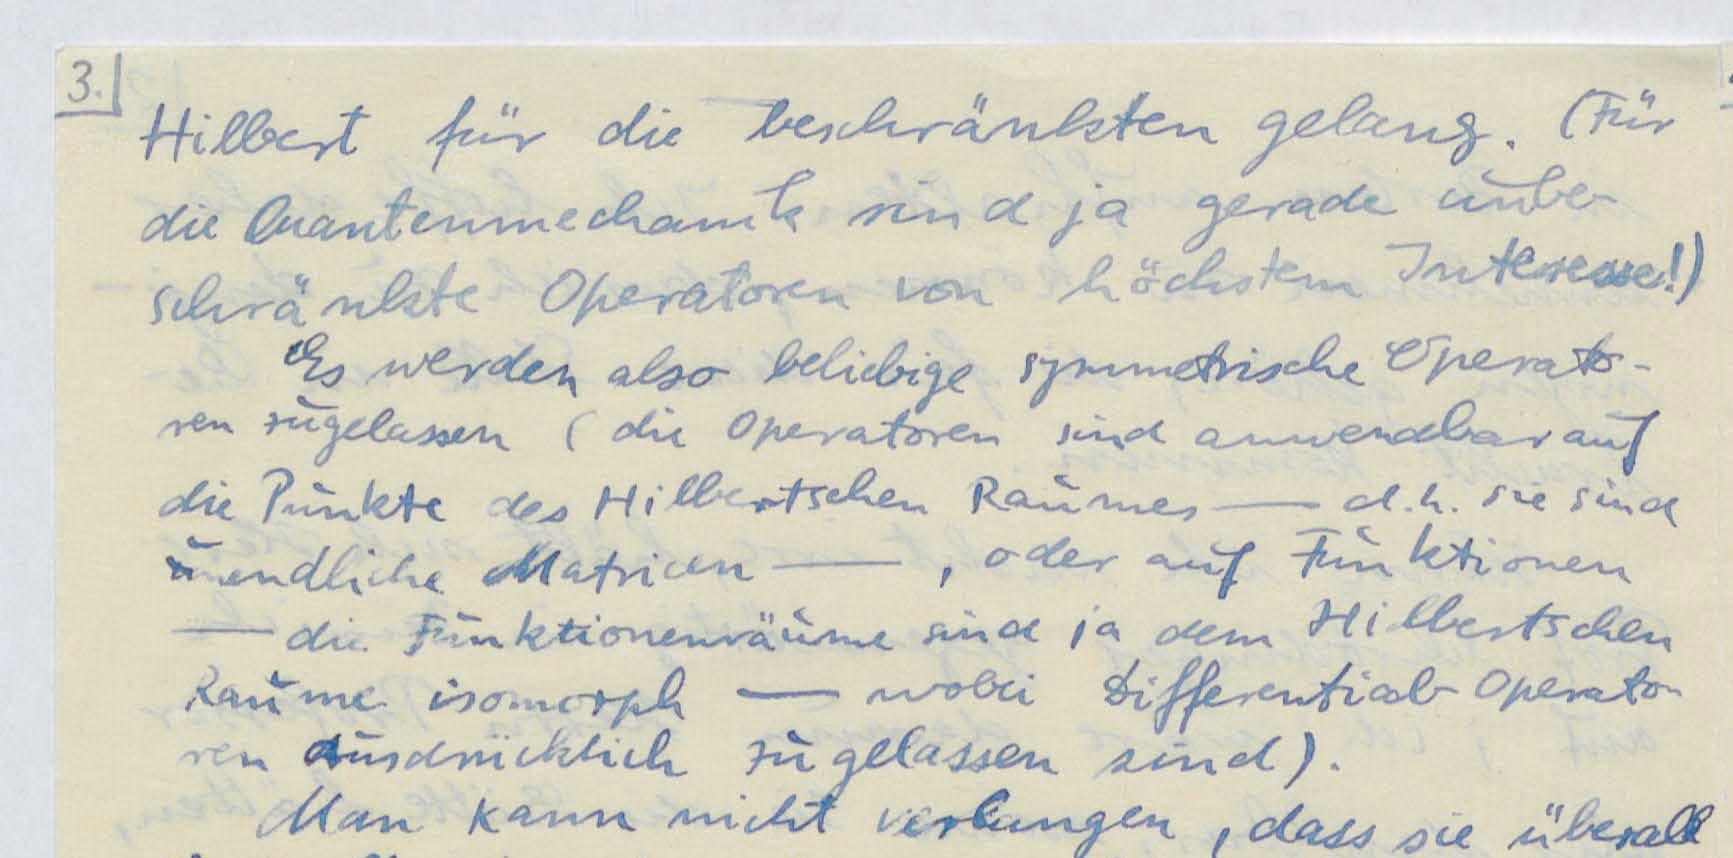 3.
Hilbert für die beschränkten gelang. (Für
die Quantenmechanik sind ja gerade unbe-
schränkte Operatoren von höchstem Interesse!)
Es werden also beliebige symmetrische Operato-
ren zugelassen (die Operatoren sind anwendbar auf
die Punkte des Hilbertschen Raumes — d.h. sie sind
unendliche Matricen — , oder auf Funktionen
— die Funktionenräume sind ja dem Hilbertschen
Raume isomorph — wobei Differential-Operato-
ren ausdrücklich zugelassen sind).
Man kann nicht verlangen, dass sie überall